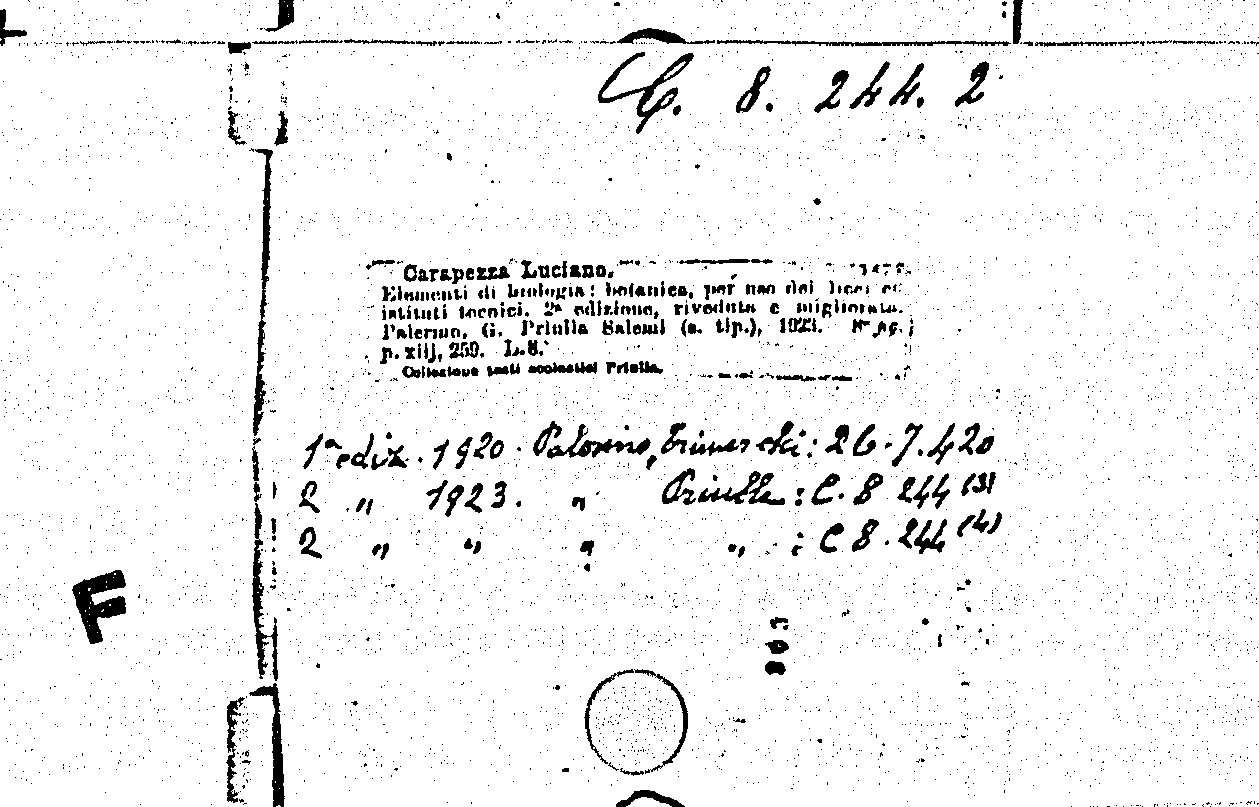 C. 8. 244. 2
Carapezza Luciano.
Elementi di biologia: botanica, per uso dei licei ed
istituti tecnici. 2ª edizione, riveduta e migliorata.
Palermo, G. Priulla Salemi (s. tip.), 1923. 8º
p. xiij, 259. L. 8.
Collezione testi scolastici Priulla.
1ª ediz. 1920. Palermo, Trimarchi: 26.7.420
2 " 1923. " Priulla: C. 8 244 (3)
2 " " " " : C 8. 244 (4)
F